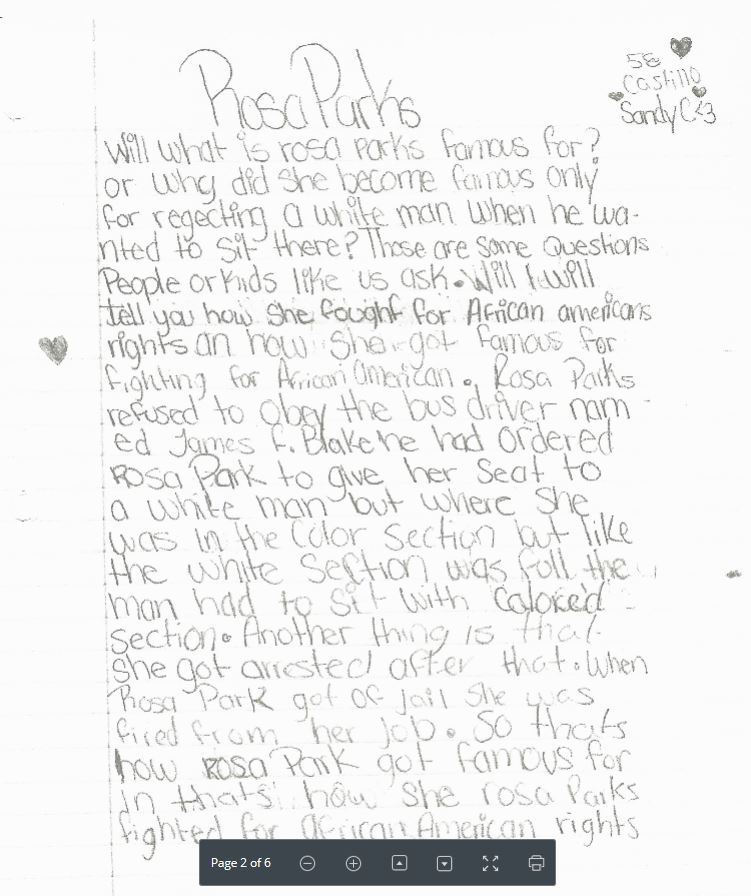 Rosa Parks
5E
Castillo
Sandy C. <3
Will what is rosa parks famous for?
or why did she become famous only
for regecting a white man when he wa-
nted to sit there? Those are some Questions
People or kids like us ask. Will I will
tell you how she fought for African americans
rights an how she got famous for
fighting for African American. Rosa Parks
refused to obey the bus driver nam-
ed James F. Blake he had ordered
Rosa Park to give her seat to
a white man but where she
was in the Color Section but like
the white section was full the
man had to sit with Colored
section. Another thing is that
she got arrested after that. When
Rosa Park got of jail she was
fired from her job. So thats
how ROSA Park got famous for
in thats how she rosa Parks
fighted for African American rights
Page 2 of 6